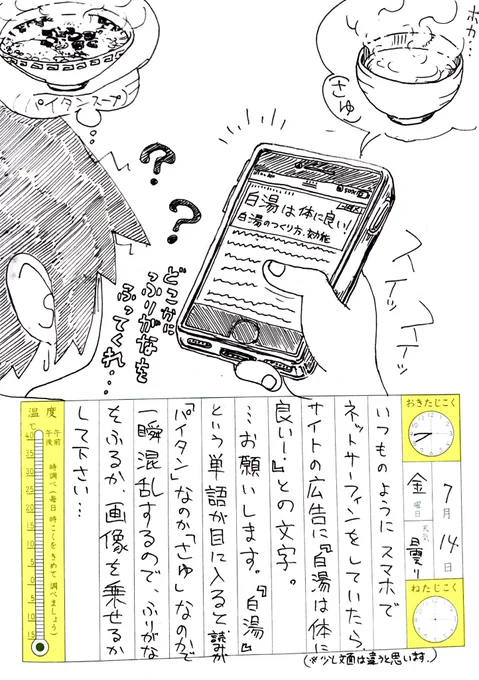 (パイタンスープ)
ホカ…
さゆ
?
?
白湯は体に良い!
白湯のつくり方、効能
スイーッ
スイーッ
どこかに
ふりがなを
ふってくれ…
おきたじこく
7月14日
金曜日
天気 曇り
ねたじこく
いつものように スマホで
ネットサーフィンをしていたら、
サイトの広告に『白湯は体に
良い!』との文字。
…お願いします。『白湯』
という単語が目に入ると読みが
「パイタン」なのか「さゆ」なのかで
一瞬混乱するので、ふりがな
をふるか、画像を乗せるか
して下さい…
(※少し文面は違うと思います。)
温度
℃
午前
午後
時調べ(毎日 時こくをきめて 調べましょう)
40
35
30
25
20
15
10
5
0
5
10
15